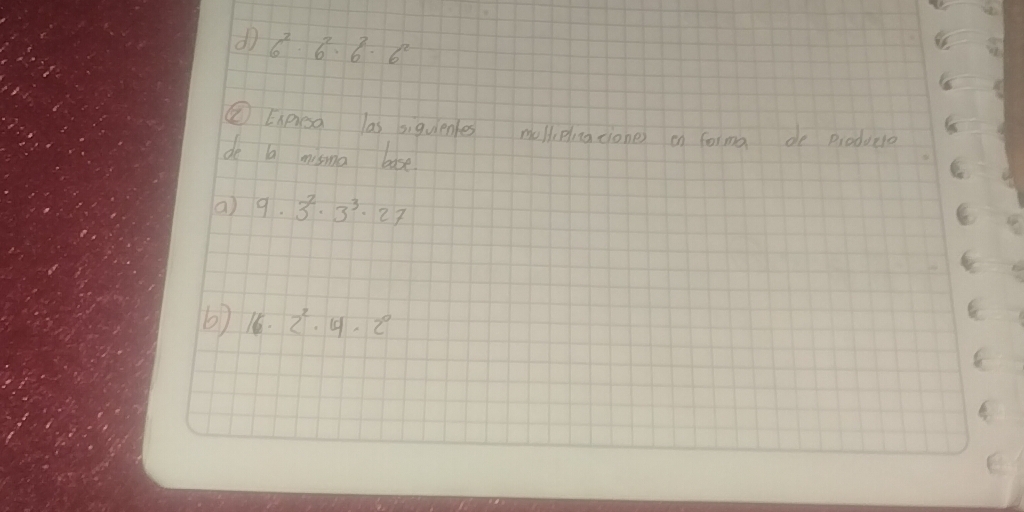 d) 6² · 6² · 6² · 6²
② Expresa las siguientes multiplicaciones en forma de Producto
de la misma base.
a) 9 · 3² · 3³ · 27
b) 16 · 2² · 4 · 2⁰